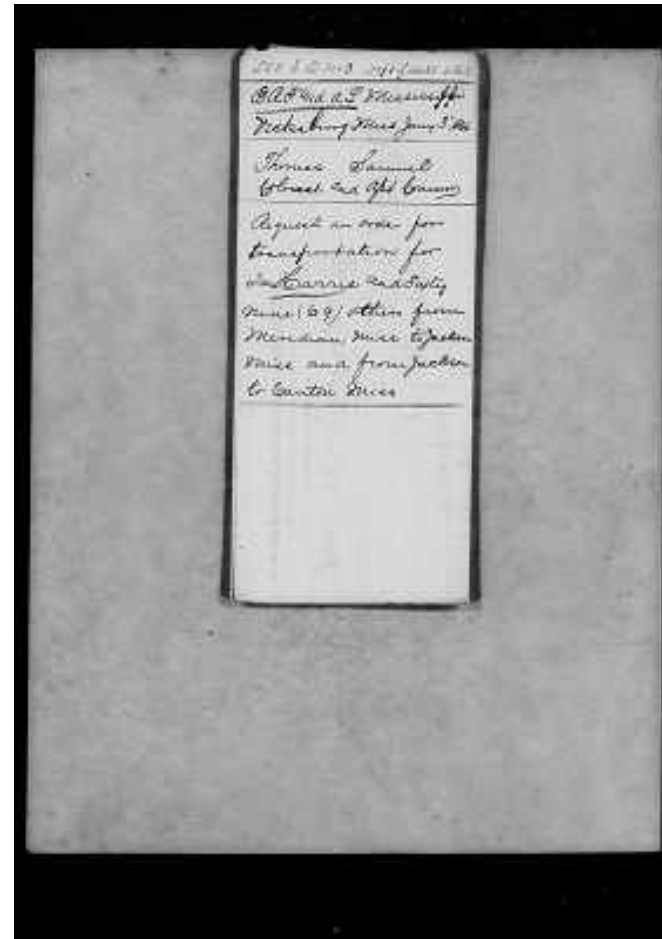 B.R.F. and A.L. Mississippi
Vicksburg Miss Jany 3" 
Thomas Samuel
Colonel and Asst Commr
Request an order for
transportation for
Harris and Sixty
nine (69) others from
Meridian, Miss to Jackson
Miss and from Jackson
to Canton Miss